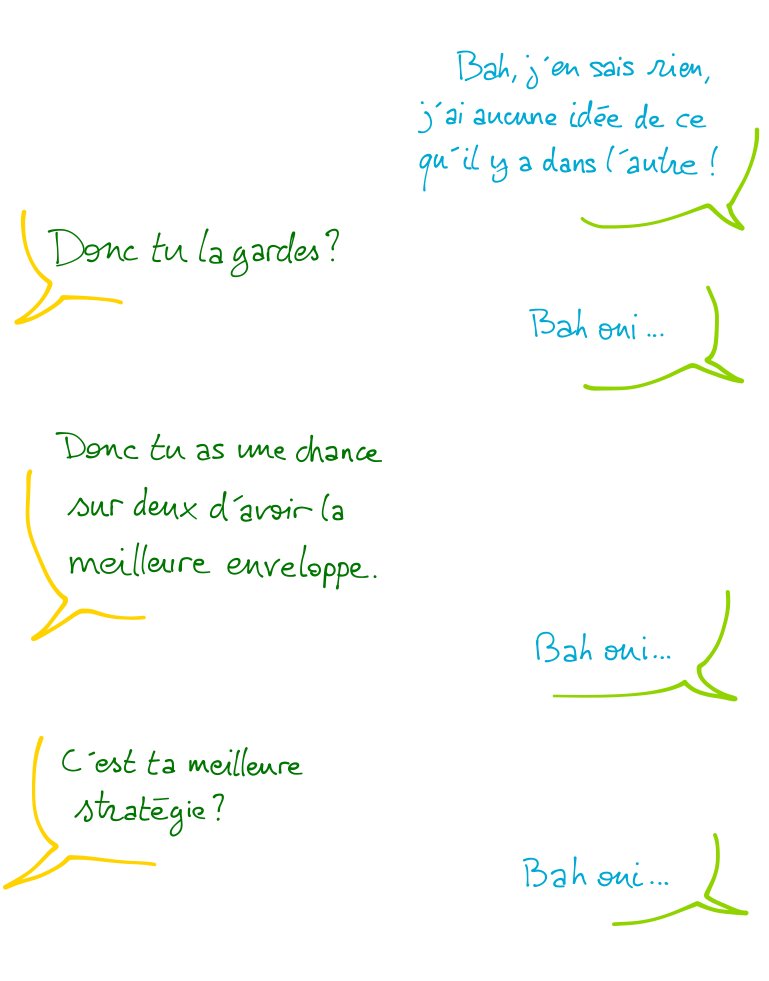 Bah, j'en sais rien,
j'ai aucune idée de ce
qu'il y a dans l'autre !
Donc tu la gardes ?
Bah oui...
Donc tu as une chance
sur deux d'avoir la
meilleure enveloppe.
Bah oui...
C'est ta meilleure
stratégie ?
Bah oui...